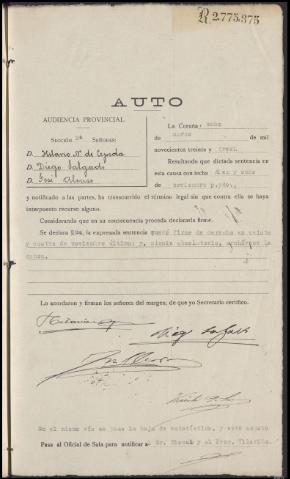 R 2.775.375
AUTO
AUDIENCIA PROVINCIAL
Sección 2ª Señores:
D. Hilario Nº de Cepeda
D. Diego Salgado
D. José Alonso
La Coruña ocho
de marzo de mil
novecientos treinta y tres.
Resultando que dictada sentencia en
esta causa con fecha diez y ocho
de noviembre ppdo.,
y notificado a las partes, ha transcurrido el término legal sin que contra ella se haya
interpuesto recurso alguno.
Considerando que en su consecuencia procede declararla firme.
Se declara firme, la expresada sentencia quedó firme de derecho en veinte
y cuatro de noviembre último; y, siendo absolutoria, archívese la
causa.
Lo acordaron y firman los señores del margen, de que yo Secretario certifico.
En el mismo día se pasa la hoja de estadística, y este asunto
Pasa al Oficial de Sala para notificar al Sr. Fiscal y al Proc. Vilariño.